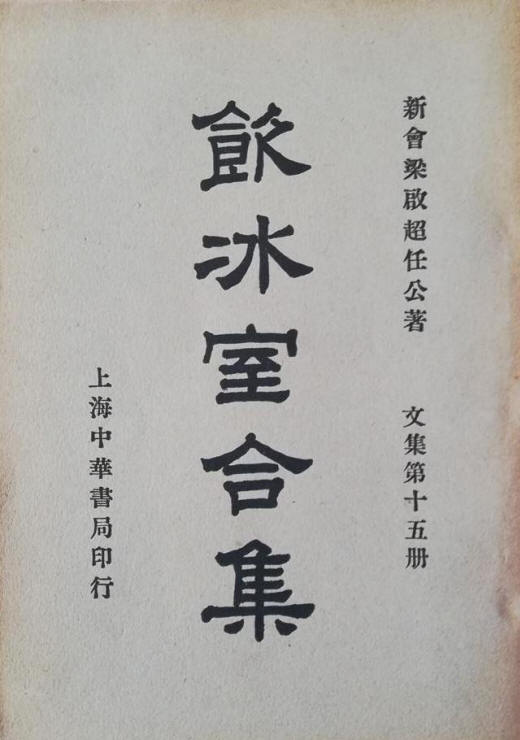 新會梁啟超任公著　文集第十五册
飲冰室合集
上海中華書局印行